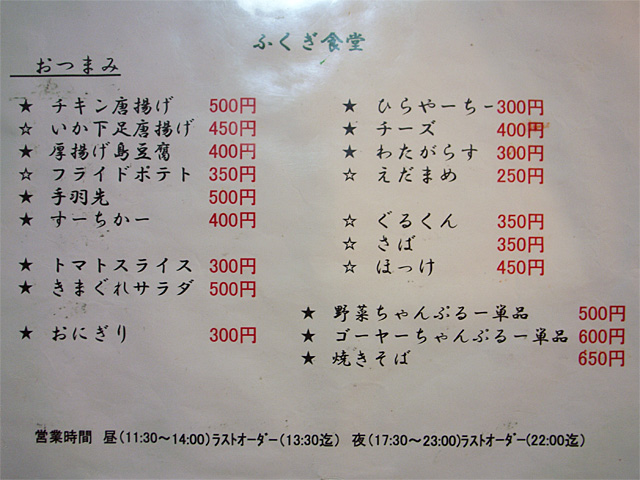 ふくぎ食堂
おつまみ
★ チキン唐揚げ 500円
☆ いか下足唐揚げ 450円
★ 厚揚げ島豆腐 400円
☆ フライドポテト 350円
★ 手羽先 500円
★ すーちかー 400円
★ トマトスライス 300円
★ きまぐれサラダ 500円
★ おにぎり 300円
★ ひらやーちー 300円
★ チーズ 400円
★ わたがらす 300円
☆ えだまめ 250円
☆ ぐるくん 350円
☆ さば 350円
☆ ほっけ 450円
★ 野菜ちゃんぷるー単品 500円
★ ゴーヤーちゃんぷるー単品 600円
★ 焼きそば 650円
営業時間 昼(11:30～14:00)ラストオーダー(13:30迄) 夜(17:30～23:00)ラストオーダー(22:00迄)